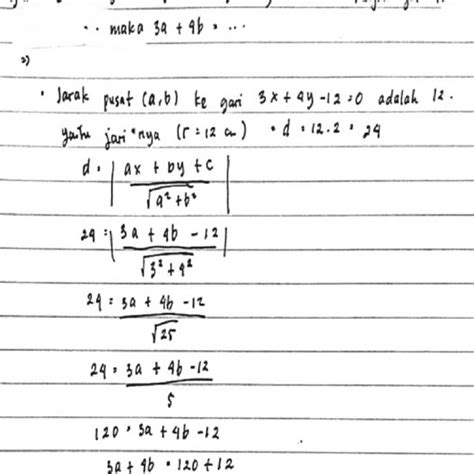 ·· maka 3a + 4b = ···
2)
• Jarak pusat (a,b) ke gari 3x + 4y - 12 = 0 adalah 12.
yaitu jari"nya (r = 12 cm) • d = 12 . 2 = 24
d = | ax + by + c / √a² + b² |
24 = | 3a + 4b - 12 / √3² + 4² |
24 = 3a + 4b - 12 / √25
24 = 3a + 4b - 12 / 5
120 = 3a + 4b - 12
3a + 4b = 120 + 12